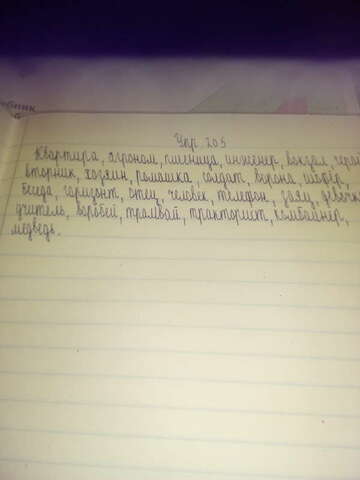 Упр. 205
Квартира, агроном, пшеница, инженер, вокзал, герой
вторник, хозяин, ромашка, солдат, ворона, шофёр,
беседа, горизонт, отец, человек, телефон, заяц, девочка
учитель, воробей, трамвай, тракторист, комбайнер,
медведь.